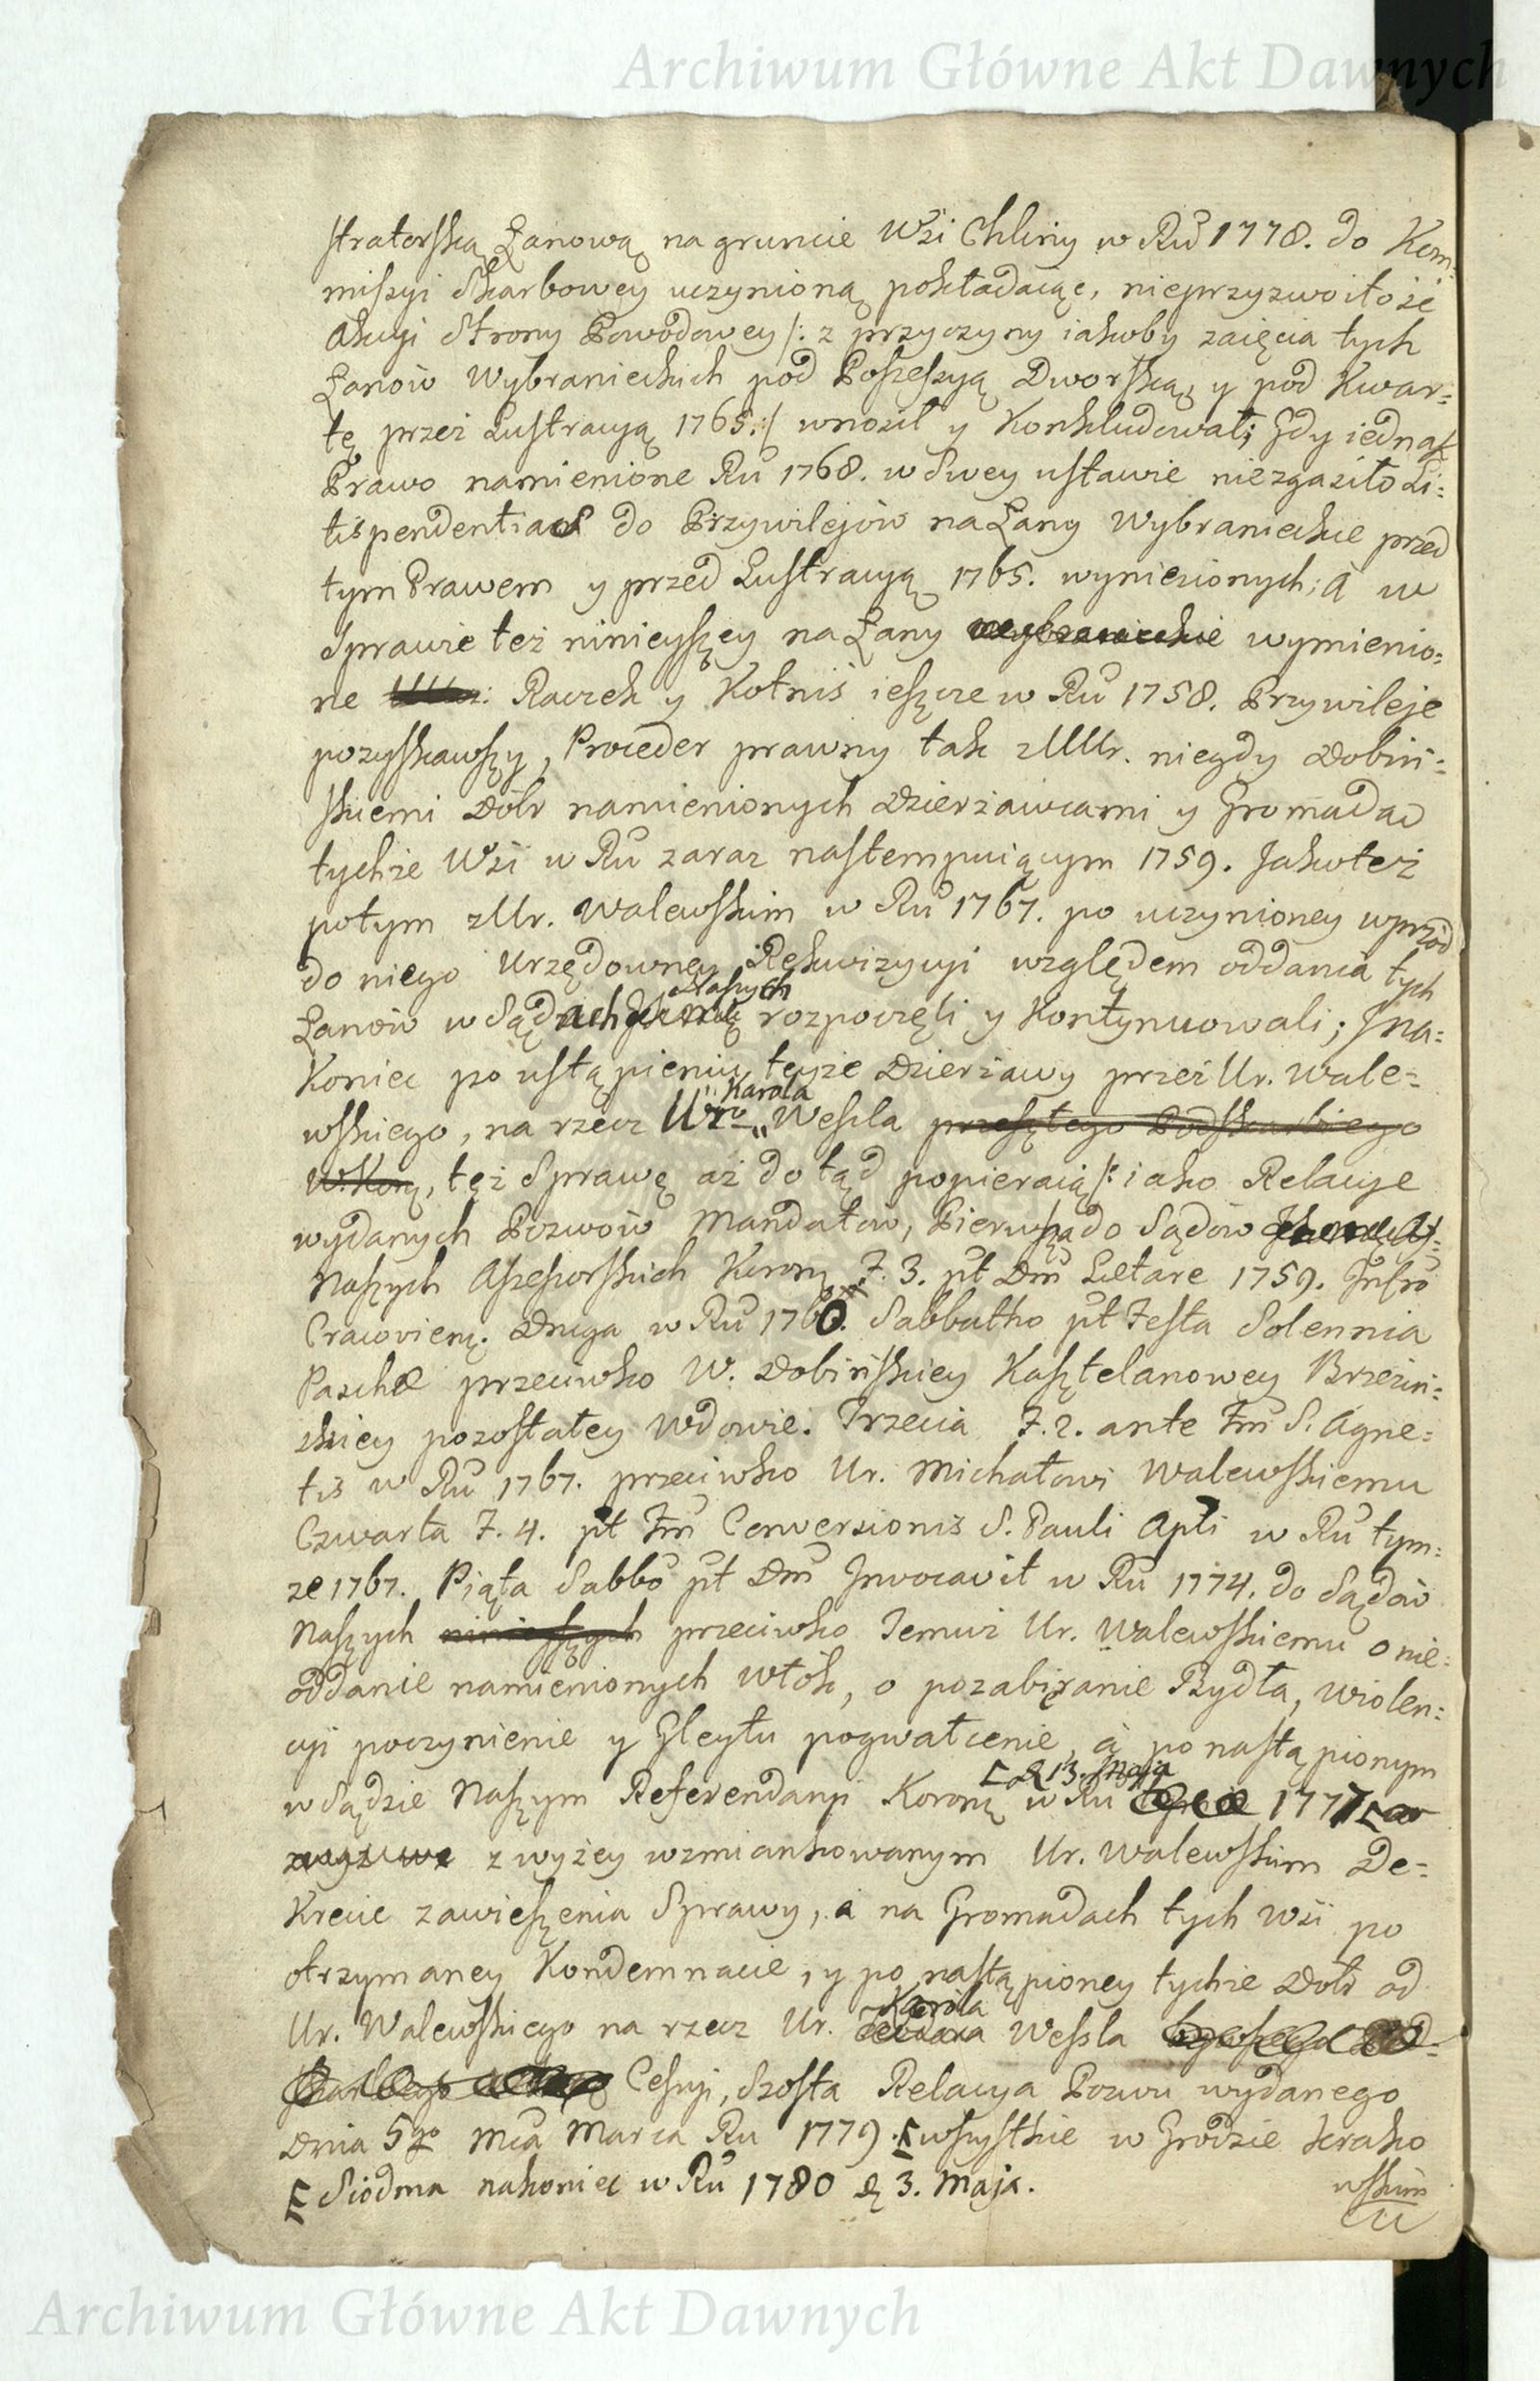 Archiwum Główne Akt Dawnych
stratorską Łanową na gruncie Wsi Chliny w Ru 1778. do Kom=
missyi Skarbowey uczynioną pokładaiąc, nieprzyzwoitość
Akcyi Strony Powodowey /: z przyczyny iakoby zaięcia tych
Łanow Wybranieckich pod Possessyą Dworską, y pod Kwar=
tę przez Lustracyą 1765 :/ wnosił y Konkludował; Gdy iednak
Prawo namienione Ru 1768. w Swey ustawie niezgasiło Li=
tispendentias do Przywilejów na Łany Wybranieckie przed
tym Prawem y przed Lustracyą 1765. wyniesionych; A w
Sprawie też ninieyszey na Łany wybranieckie wymienio=
ne Raczek y Kotniś ieszcze w Ru 1758. Przywileje
pozyskawszy, Proceder prawny tak z UUr. niegdy Dobiń=
skiemi Dóbr namienionych Dzierżawcami y Gromadac
tychże Wsi w Ru zaraz nastempuiącym 1759. Jako też
potym z Ur. Walewskim w Ru 1767. po uczynioney wprzód
do niego Urzędowney Rekwizycyi względem oddania tych
Naszych
Łanow w Sądach rozpoczęli y Kontynuowali; Jna=
koniec po ustąpieniu teyże Dzierżawy przez Ur. Wale=
Karola
wskiego, na rzecz Ur° Wessla przeszłego Podskarbiego
W. Koro, też Sprawę aż do tąd popieraią /: iako Relacye
wydanych Pozwow Mandatow, Pierwsza do Sądów
Naszych Assessorskich Korony F. 3. pt Dm Letare 1759. Jn Cro
Cracovien. Druga w Ru 1760. Sabbatho pt Festa Solennia
Paschæ przeciwko W. Dobińskiey Kasztelanowey Brzeziń=
skiey pozostałey Wdowie. Trzecia F. 2. ante Fm S. Agne=
tis w Ru 1767. przeciwko Ur. Michałowi Walewskiemu
Czwarta F. 4. pt Fm Conversionis S. Pauli Apli w Ru tym=
ze 1767. Piąta Sabbo pt Dm Jnvocavit w Ru 1774. do Sądów
Naszych ninieyszych przeciwko Temuż Ur. Walewskiemu o nie=
oddanie namienionych Włók, o pozabiranie Bydła, wiolen=
cyi poczynienie y Gleytu pogwałcenie, a po nastąpionym
d 13. Maja
w Sądzie Naszym Referendaryi Korony w Ru 1777
z wyżey wzmiankowanym Ur. Walewskim De=
krecie zawieszenia Sprawy, a na Gromadach tych Wsi po
otrzymaney Kondemnacie, y po nastąpioney tychże Dóbr od
Karola
Ur. Walewskiego na rzecz Ur. Teodora Wessla
Cessyi, Szosta Relacya Pozwu wydanego
Dnia 5go Mca Marca Ru 1779. wszystkie w Grodzie Krako
Siodma nakoniec w Ru 1780 d 3. Maja.
wskim
Archiwum Główne Akt Dawnych